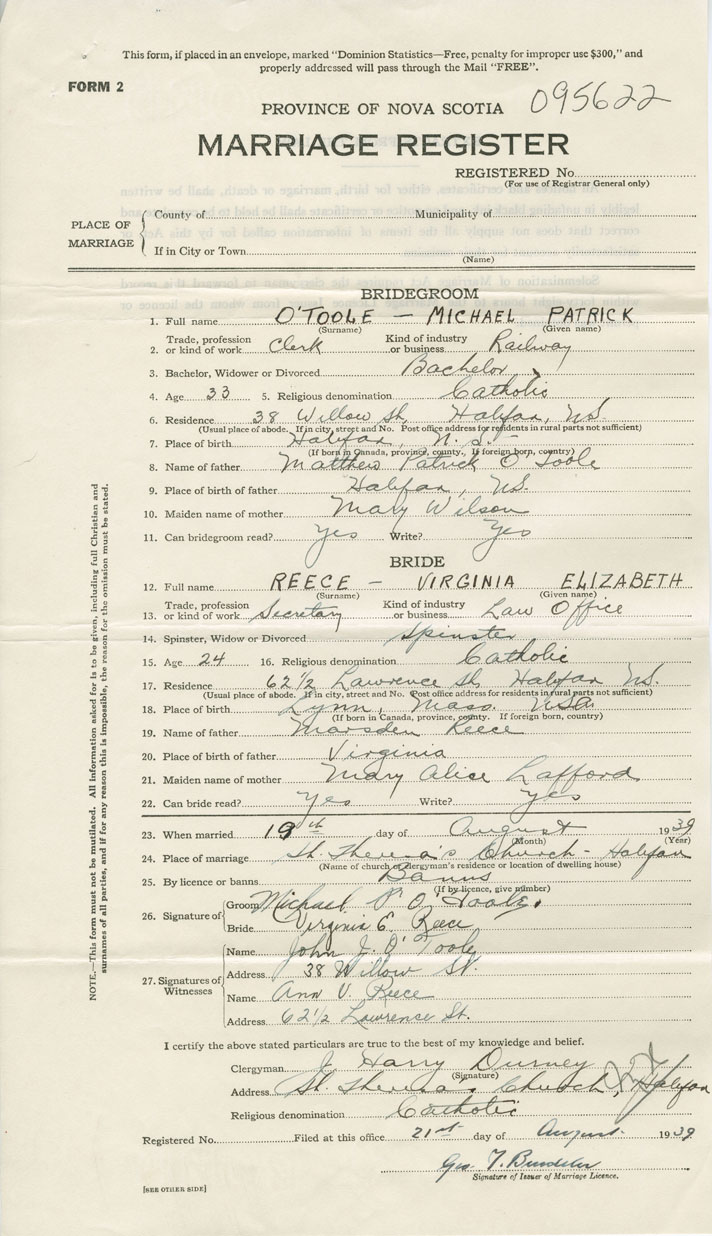 This form, if placed in an envelope, marked "Dominion Statistics—Free, penalty for improper use $300," and
properly addressed will pass through the Mail "FREE".
FORM 2
PROVINCE OF NOVA SCOTIA 095622
MARRIAGE REGISTER
REGISTERED No.
(For use of Registrar General only)
PLACE OF MARRIAGE
County of Municipality of
If in City or Town
(Name)
BRIDEGROOM
1. Full name O'TOOLE — MICHAEL PATRICK
(Surname) (Given name)
2. Trade, profession or kind of work Clerk Kind of industry or business Railway
3. Bachelor, Widower or Divorced Bachelor
4. Age 33 5. Religious denomination Catholic
6. Residence 38 Willow St, Halifax, N.S.
(Usual place of abode. If in city, street and No. Post office address for residents in rural parts not sufficient)
7. Place of birth Halifax, N.S.
(If born in Canada, province, county. If foreign born, country)
8. Name of father Matthew Patrick O'Toole
9. Place of birth of father Halifax, N.S.
10. Maiden name of mother Mary Wilson
11. Can bridegroom read? Yes Write? Yes
BRIDE
12. Full name REECE — VIRGINIA ELIZABETH
(Surname) (Given name)
13. Trade, profession or kind of work Secretary Kind of industry or business Law Office
14. Spinster, Widow or Divorced Spinster
15. Age 24 16. Religious denomination Catholic
17. Residence 62½ Lawrence St. Halifax N.S.
(Usual place of abode. If in city, street and No. Post office address for residents in rural parts not sufficient)
18. Place of birth Lynn, Mass. USA.
(If born in Canada, province, county. If foreign born, country)
19. Name of father Marsden Reece
20. Place of birth of father Virginia
21. Maiden name of mother Mary Alice Lafford
22. Can bride read? Yes Write? Yes
23. When married 19th day of August 1939
(Month) (Year)
24. Place of marriage St. Theresa's Church - Halifax
(Name of church, clergyman's residence or location of dwelling house)
25. By licence or banns Banns
(If by licence, give number)
26. Signature of
Groom Michael P O'Toole.
Bride Virginia E. Reece
27. Signatures of Witnesses
Name John J. O'Toole
Address 38 Willow St.
Name Ann V. Reece
Address 62½ Lawrence St.
I certify the above stated particulars are true to the best of my knowledge and belief.
Clergyman J. Harry Durney
(Signature)
Address St. Theresa's Church, Halifax
Religious denomination Catholic
Registered No. Filed at this office 21st day of August 1939
Geo. T.
Signature of Issuer of Marriage Licence.
[SEE OTHER SIDE]
NOTE.—This form must not be mutilated. All information asked for is to be given, including full Christian and
surnames of all parties, and if for any reason this is impossible, the reason for the omission must be stated.